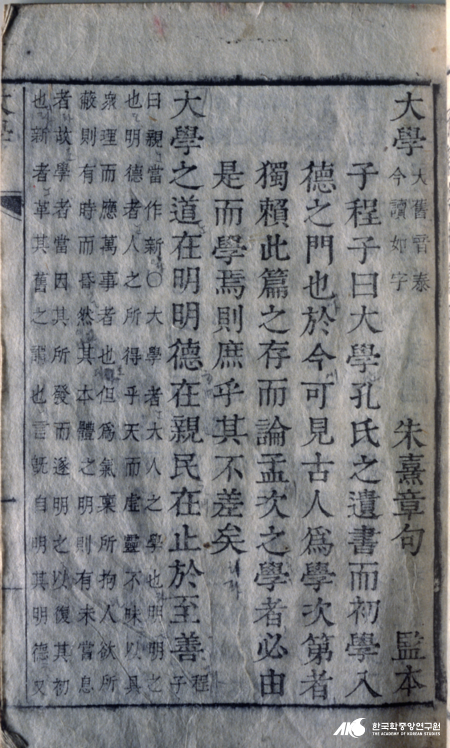 大學 大舊音泰
今讀如字
朱熹章句 監本
子程子曰大學孔氏之遺書而初學入
德之門也於今可見古人爲學次第者
獨賴此篇之存而論孟次之學者必由
是而學焉則庶乎其不差矣
大學之道在明明德在親民在止於至善 程子
曰親當作新○大學者大人之學也明明之
也明德者人之所得乎天而虛靈不昧以具
衆理而應萬事者也但爲氣稟所拘人欲所
蔽則有時而昏然其本體之明則有未嘗息
者故學者當因其所發而遂明之以復其初
也新者革其舊之謂也言旣自明其明德又
한국학중앙연구원
THE ACADEMY OF KOREAN STUDIES